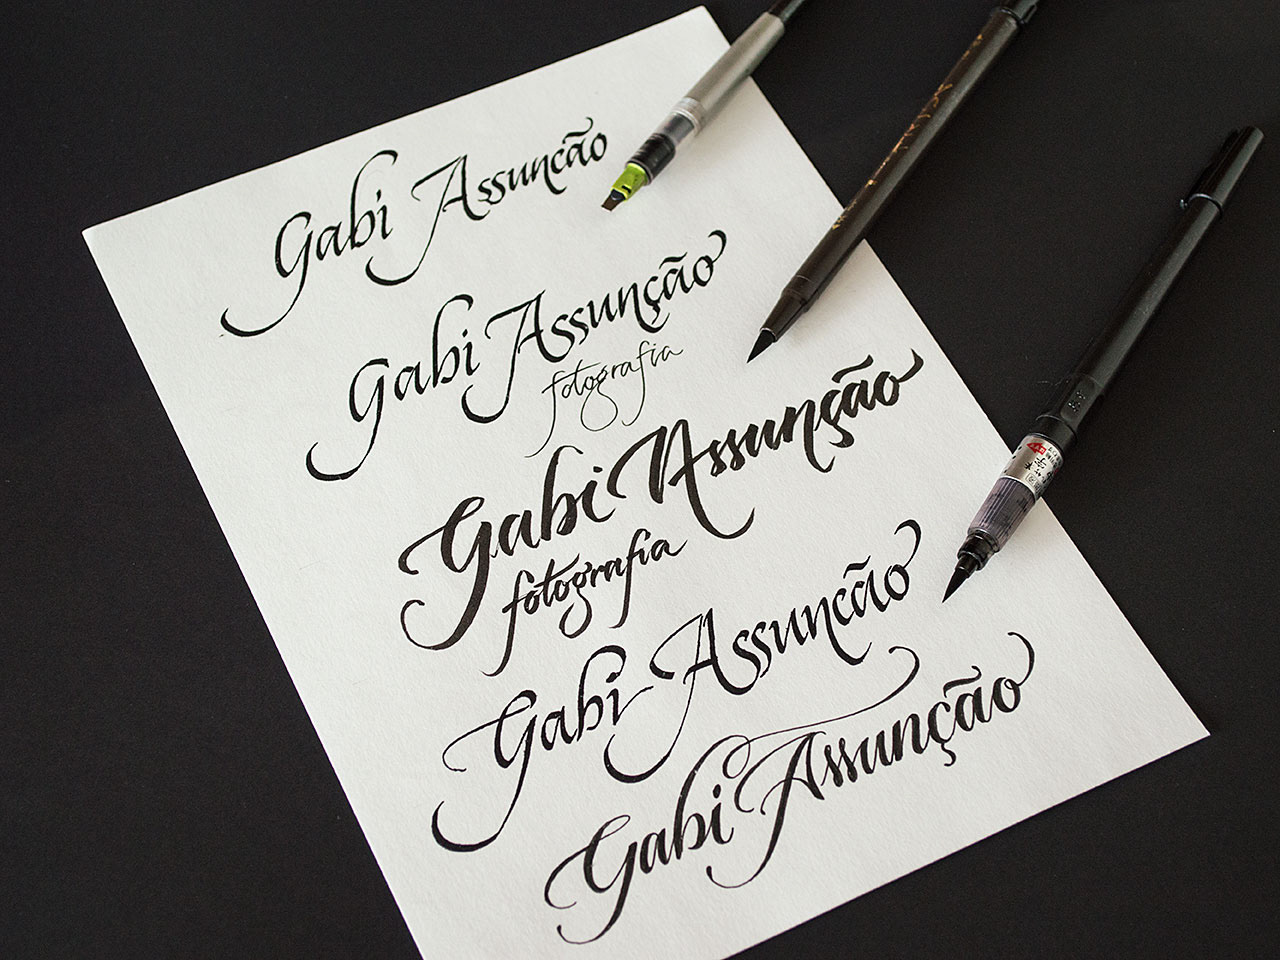 Gabi Assuncão
Gabi Assunção
fotografia
Gabi Assunção
fotografia
Gabi Assuncão
Gabi Assunção